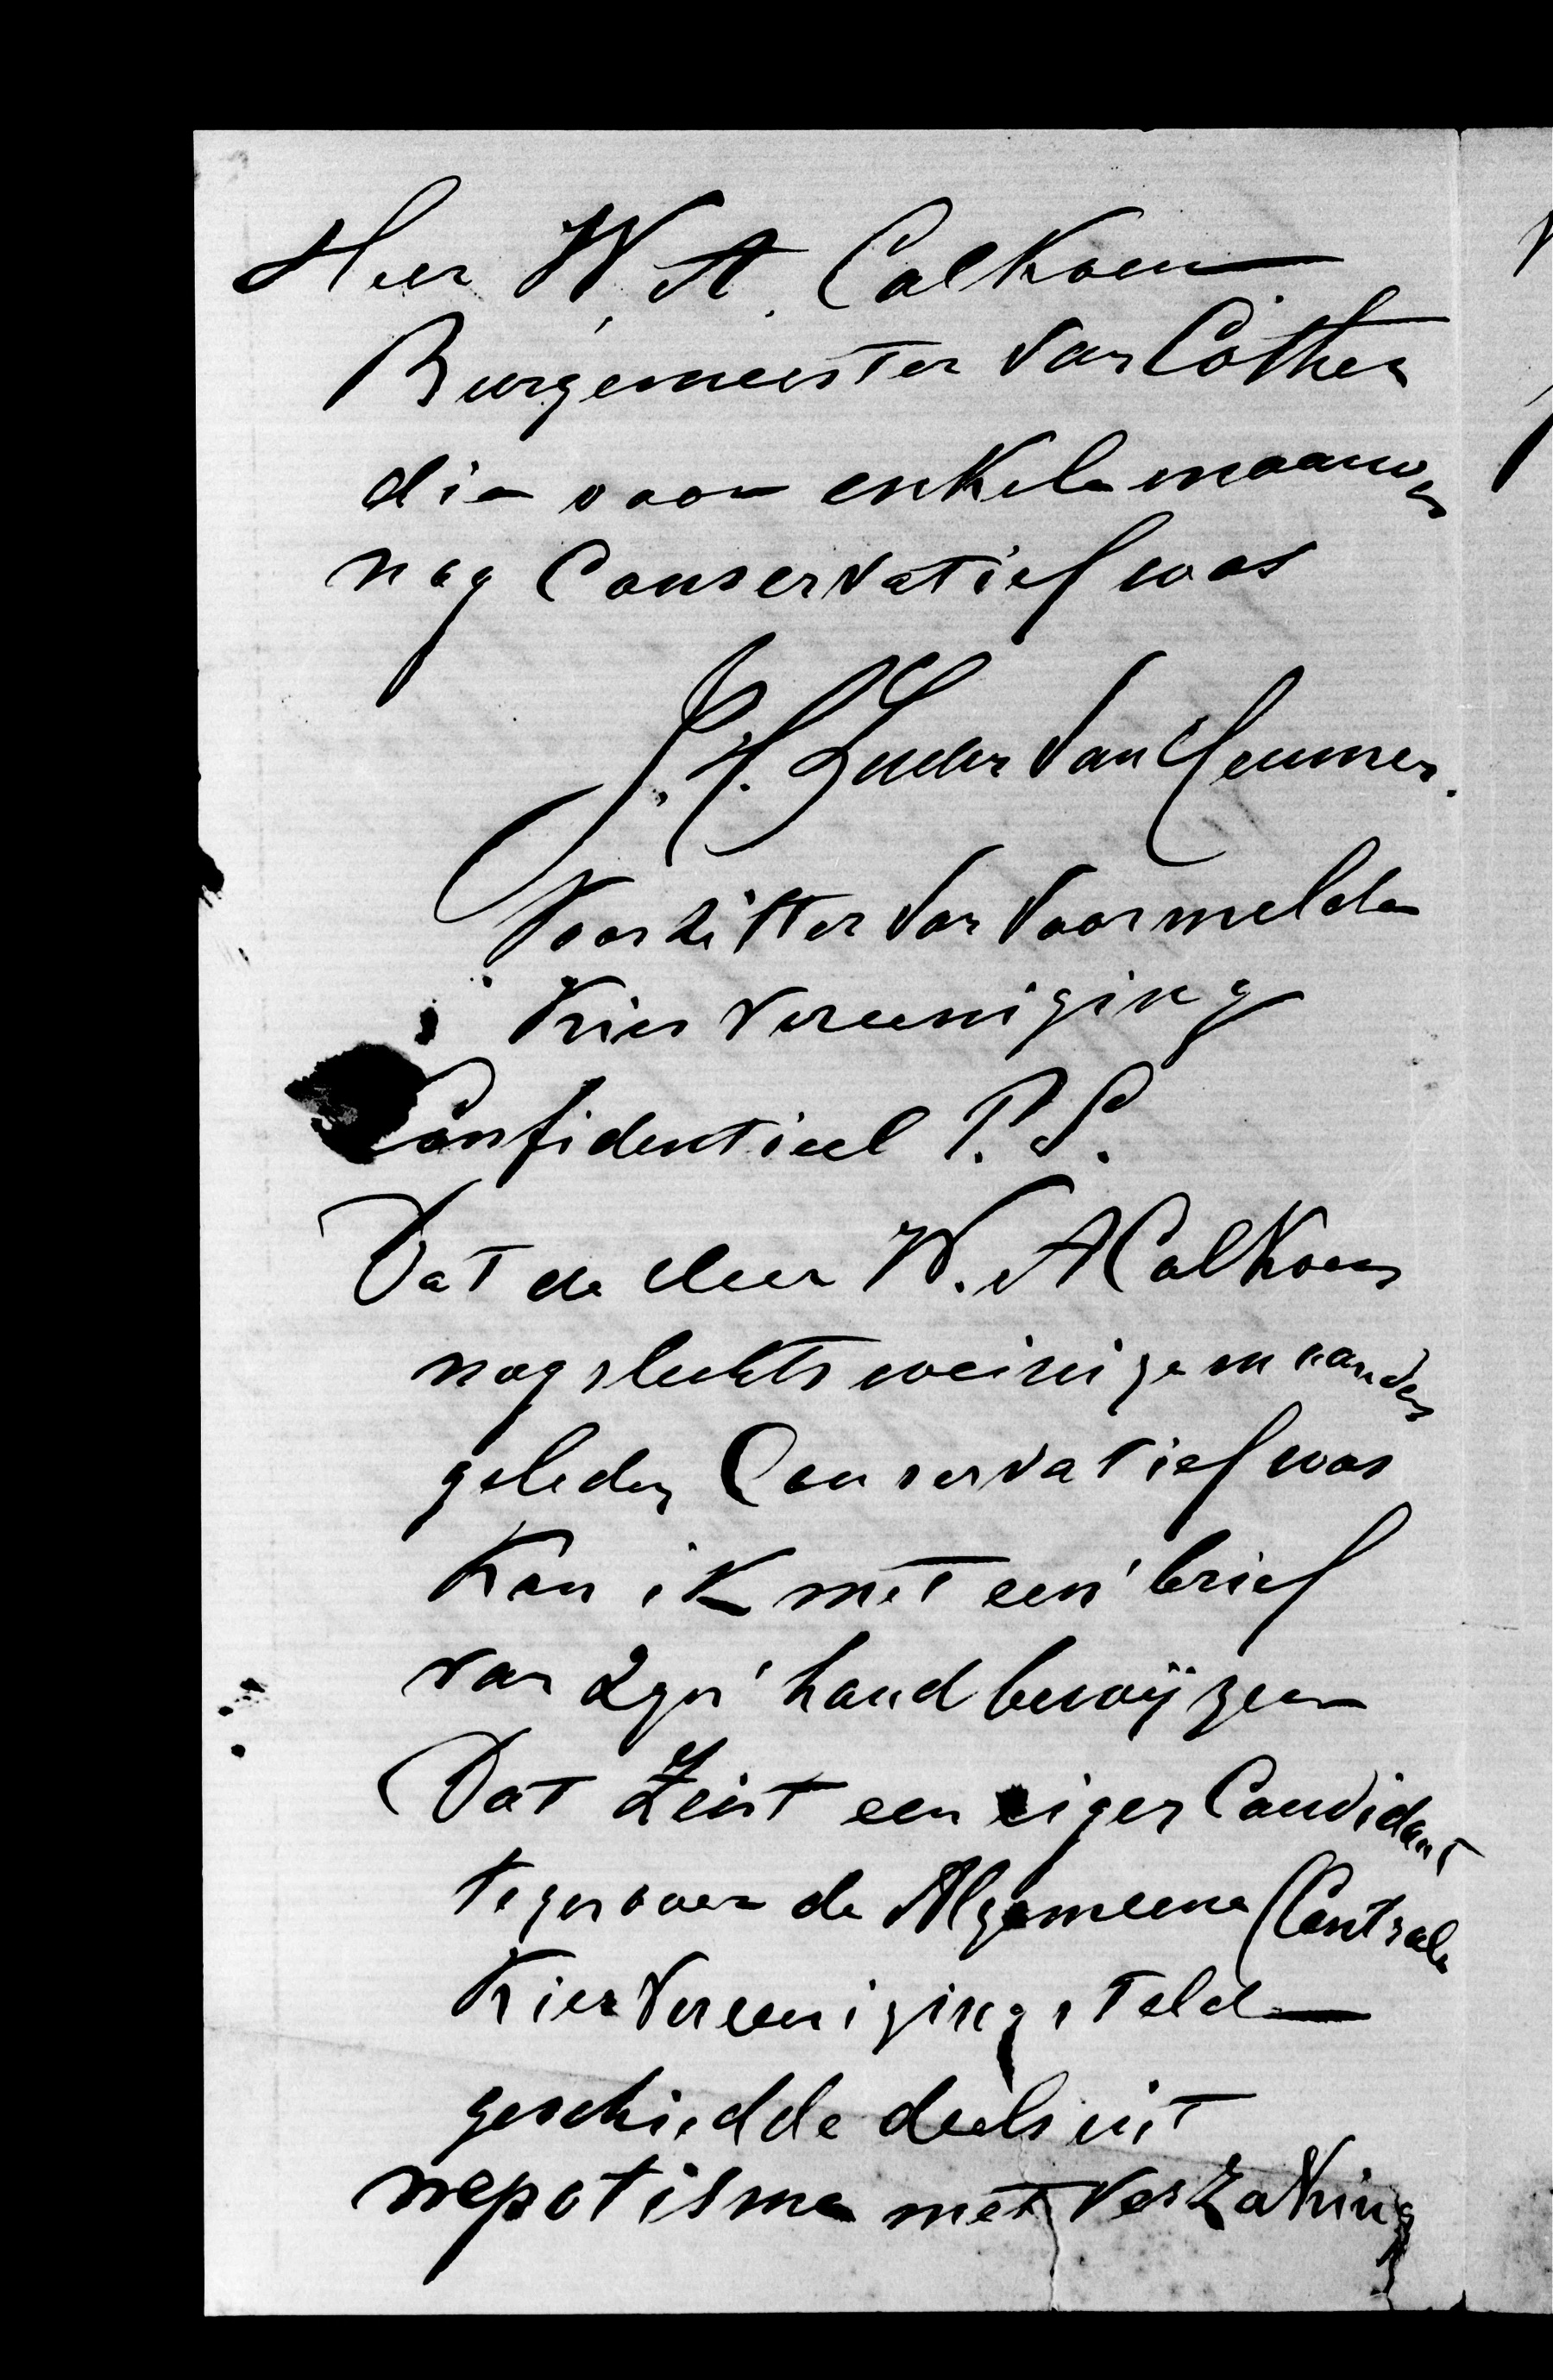 Heer W. A. Calkoen
Burgemeester van Cothen
die voor enkele maanden
nog Conservatief was
J. H. van
Voorzitter van voormelde
Kiesvereeniging
Confidentieel P.S.
Dat de Heer W. A Calkoen
nog slechts weinige maanden
geleden Conservatief was
Kan ik met een brief
van zyn hand bewijzen
Dat Zeist een eigen Candidaat
tegenover de Algemeene (Centrale
Kiesvereeniging stelde
geschiedde deels uit
nepotisme met verzaking